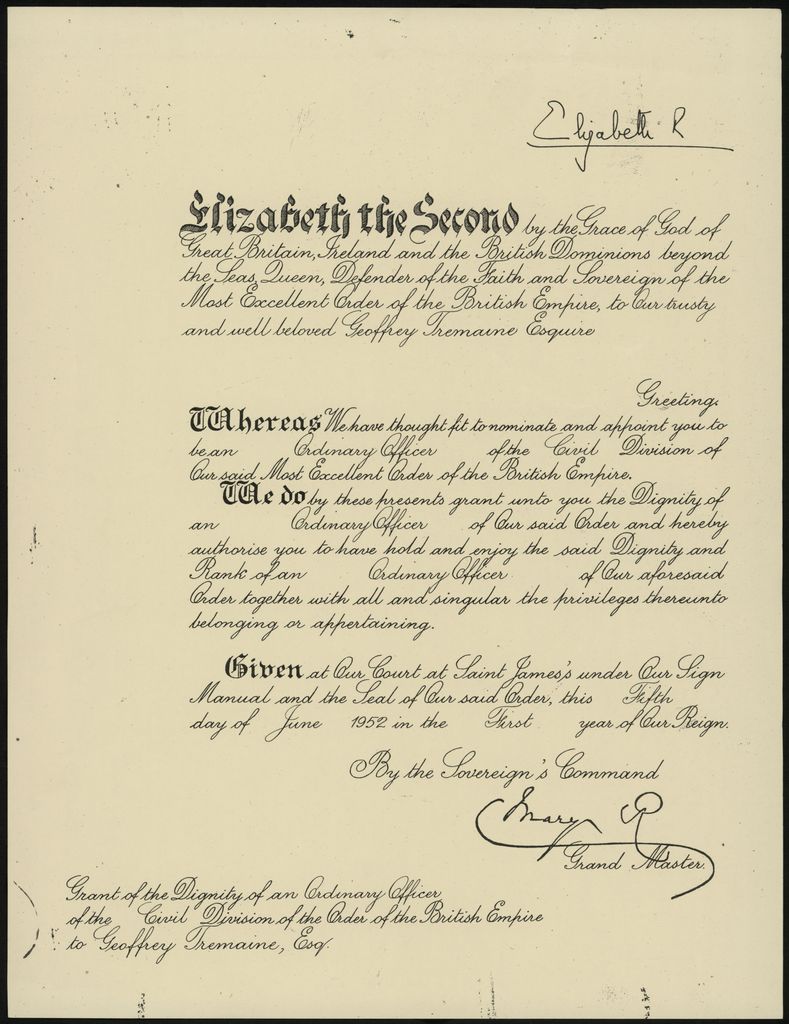 Elizabeth R
Elizabeth the Second by the Grace of God of
Great Britain, Ireland and the British Dominions beyond
the Seas, Queen, Defender of the Faith and Sovereign of the
Most Excellent Order of the British Empire, to Our trusty
and well beloved Geoffrey Tremaine Esquire
Greeting.
Whereas We have thought fit to nominate and appoint you to
be an Ordinary Officer of the Civil Division of
Our said Most Excellent Order of the British Empire.
We do by these presents grant unto you the Dignity of
an Ordinary Officer of Our said Order and hereby
authorise you to have hold and enjoy the said Dignity and
Rank of an Ordinary Officer of Our aforesaid
Order together with all and singular the privileges thereunto
belonging or appertaining.
Given at Our Court at Saint James's under Our Sign
Manual and the Seal of Our said Order, this Fifth
day of June 1952 in the First year of Our Reign.
By the Sovereign's Command
Mary R
Grand Master.
Grant of the Dignity of an Ordinary Officer
of the Civil Division of the Order of the British Empire
to Geoffrey Tremaine, Esq.